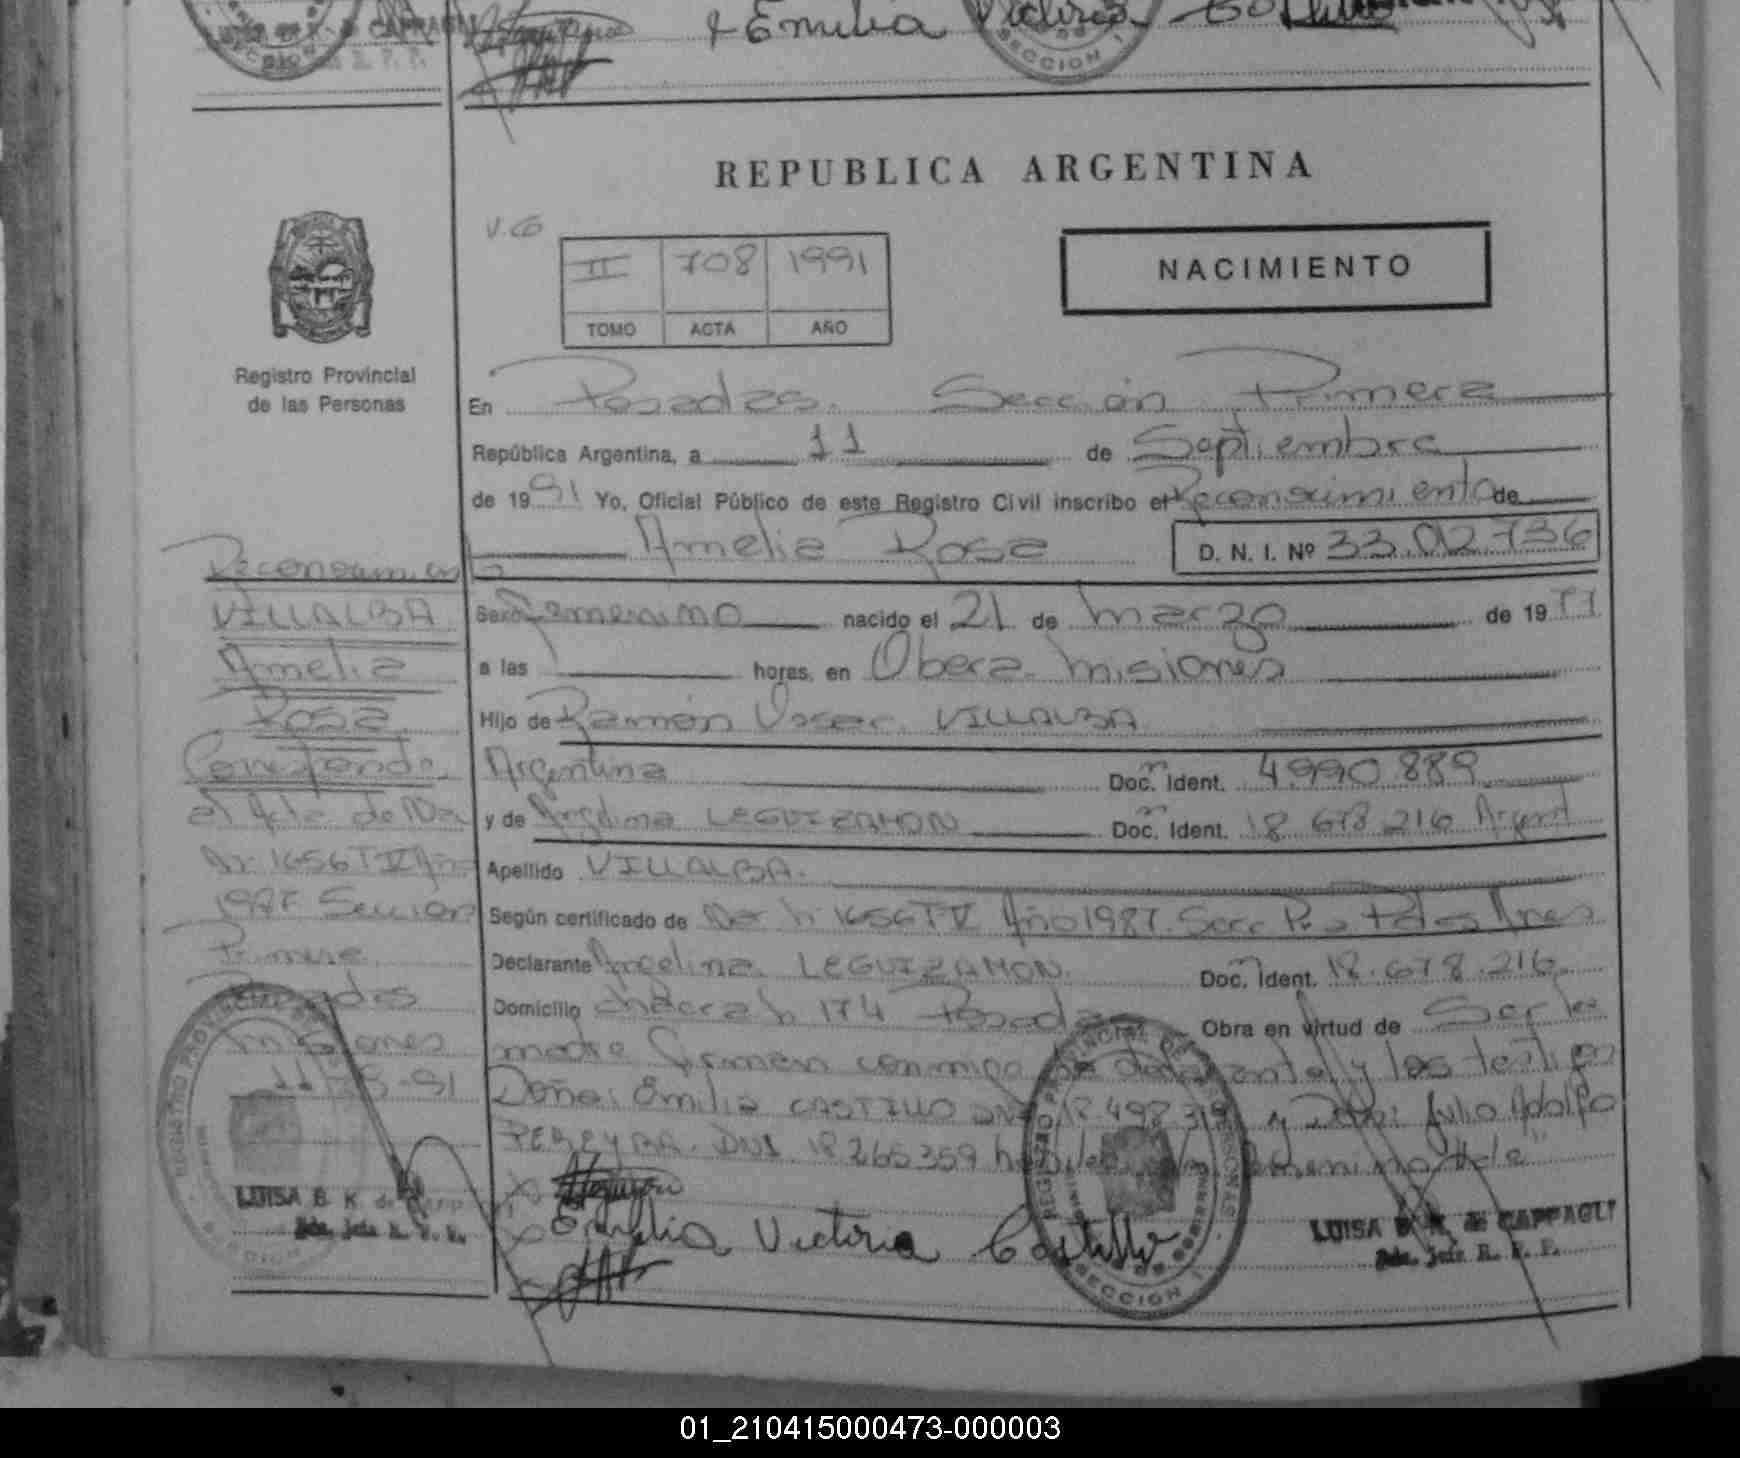 + Emilia Victoria
SECCION I
REPUBLICA ARGENTINA
V.G
II 708 1991
TOMO ACTA AÑO
NACIMIENTO
Registro Provincial
de las Personas
En Posadas. Sección Primera
República Argentina, a 11 de Septiembre
de 1991 Yo, Oficial Público de este Registro Civil inscribo el Reconocimiento de
Amelia Rosa D. N. I. Nº 33.012.736
Sexo Femenino nacido el 21 de marzo de 19
a las horas, en Obera. Misiones
Hijo de Ramón Oscar. VILLALBA
Argentina Doc. Ident. 4990.889
y de Angelina LEGUIZAMON Doc. Ident. 18 678 216 Argent
Apellido VILLALBA.
Según certificado de Nac N: 1656 T IV Año 1987. Secc Pos Mnes
Declarante Angelina LEGUIZAMON. Doc. Ident. 18.678.216
Domicilio chacra N 174 Posadas Obra en virtud de Ser la
madre Firman conmigo la declarante y los testigos
Doña: Emilia CASTILLO DNI y Don: Julio Adolfo
PEREYRA. DNI 18265359
Emilia Victoria Castillo
Reconocimiento
VILLALBA
Amelia
Rosa
Corresponde
al Acta de Nac
N: 1656 T IV Año
1987 Seccion
Primera
Posadas
Misiones
11-09-91
LUISA B. K. de
Jefe R. P. P.
REGISTRO PROVINCIAL DE LAS PERSONAS
SECCION I
LUISA B. K. de CAPPAGLI
Jefe R. P. P.
01_210415000473-000003